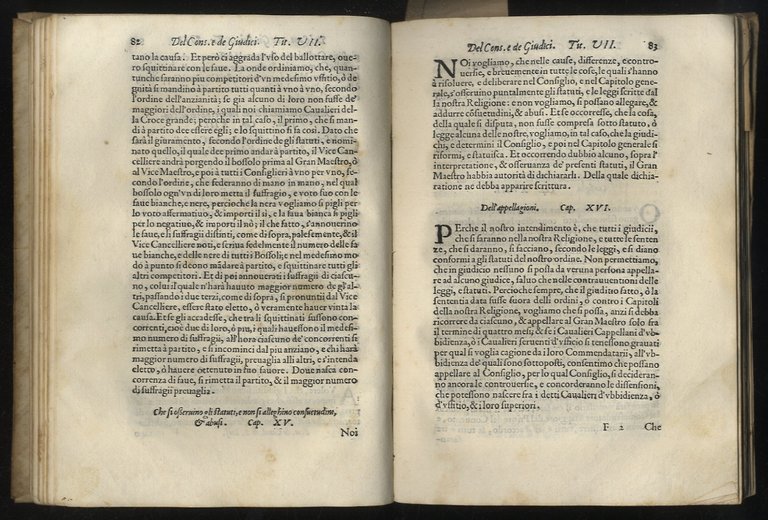 82 Del Cons. e de Giudici. Tit. VII.
tano la causa. Et però ci aggrada l'vso del ballottare, oue-
ro squittinare con le faue. La onde ordiniamo, che, quan-
tunche saranno piu competitori d'vn medesimo vffitio, ò de
guità si mandino à partito tutti quanti à vno à vno, secondo
l'ordine dell'anzianità; se gia alcuno di loro non fusse de'
maggiori dell'ordine, i quali noi chiamiamo Caualieri del-
la Croce grande; peroche in tal caso, il primo, che si man-
di à partito dee essere egli; e lo squittino si fa così. Dato che
sarà il giuramento, secondo l'ordine de gli statuti, e nomi-
nato quello, il quale dee primo andar à partito, il Vice Can-
celliere andrà porgendo il bossolo prima al Gran Maestro, ò
al Vice Maestro, e poi à tutti i Consiglieri à vno per vno, se-
condo l'ordine, che sederanno di mano in mano, nel qual
bossolo ogn'vn di loro metta il suffragio, e voto suo con le
faue bianche, e nere, percioche la nera vogliamo si pigli per
lo voto affermatiuo, & importi il sì, e la faua bianca si pigli
per lo negatiuo, & importi il nò; il che fatto, s'annouerino
le faue, e li suffragij distinti, come di sopra, palesemente, & il
Vice Cancelliere noti, e scriua fedelmente il numero delle fa
ue bianche, e delle nere di tutti i Bossoli; e nel medesimo mo-
do à punto si deono mãdare à partito, e squittinare tutti gli
altri competitori. Et di poi annouerati i suffragij di ciascu-
no, colui il quale n'harà hauuto maggior numero de gl'al-
tri, passando i due terzi, come di sopra, si pronunti dal Vice
Cancelliere, essere stato eletto, ò veramente hauer vinta la
causa. Et se gli accadesse, che tra li squittinati fussono con-
correnti, cioè due de loro, ò piu, i quali hauessono il medesi-
mo numero di suffragij, all'hora ciascuno de' concorrenti si
rimetta à partito, e si incominci dal piu anziano, e chi harà
maggior numero di suffragij, preuaglia alli altri, e s'intenda
eletto, ò hauere ottenuto in suo fauore. Doue nasca con-
correnza di faue, si rimetta il partito, & il maggior numero
di suffragij preuaglia.
Che si osseruino gli statuti, e non si alleghino consuetudini,
& abusi. Cap. XV.
Noi
Del Cons. e de Giudici. Tit. VII. 83
NOi vogliamo, che nelle cause, differenze, e contro-
uersie, e breuemente in tutte le cose, le quali s'hanno
à risoluere, e deliberare nel Consiglio, e nel Capitolo gene-
rale, s'osseruino puntalmente gli statuti, e le leggi scritte dal
la nostra Religione: e non vogliamo, si possano allegare, &
addurre cõsuetudini, & abusi. Et se occorresse, che la cosa,
della quale si disputa, non fusse compresa sotto statuto, ò
legge alcuna delle nostre, vogliamo, in tal caso, che la giudi-
chi, e determini il Consiglio, e poi nel Capitolo generale si
riformi, e statuisca. Et occorrendo dubbio alcuno, sopra l'
interpretatione, & osseruanza de' presenti statuti, il Gran
Maestro habbia autorità di dichiararli. Della quale dichia-
ratione ne debba apparire scrittura.
Dell'appellagioni. Cap. XVI.
PErche il nostro intendimento è, che tutti i giudicij,
che si faranno nella nostra Religione, e tutte le senten
ze, che si daranno, si facciano, secondo le leggi, e si diano
conformi a gli statuti del nostro ordine. Non permettiamo,
che in giudicio nessuno si possa da veruna persona appella-
re ad alcuno giudice, saluo che nelle contrauuentioni delle
leggi, e statuti. Percioche sempre, che il giuditio fatto, ò la
sententia data fusse fuora delli ordini, ò contro i Capitoli
della nostra Religione, vogliamo che si possa, anzi si debba
ricorrere da ciascuno, & appellare al Gran Maestro solo fra
il termine di quattro mesi; & se i Caualieri Cappellani d'vb-
bidienza, ò i Caualieri seruenti d'vfficio si tenessono grauati
per qual si voglia cagione da i loro Commendatarij, all'vb-
bidienza de' quali sono sottoposti, consentimo che possano
appellare al Consiglio, per lo qual Consiglio, si decideran-
no ancora le controuersie, e concorderanno le dissensioni,
che potessono nascere fra i detti Caualieri d'vbbidienza, ò
d'vffitio, & i loro superiori.
F 2 Che